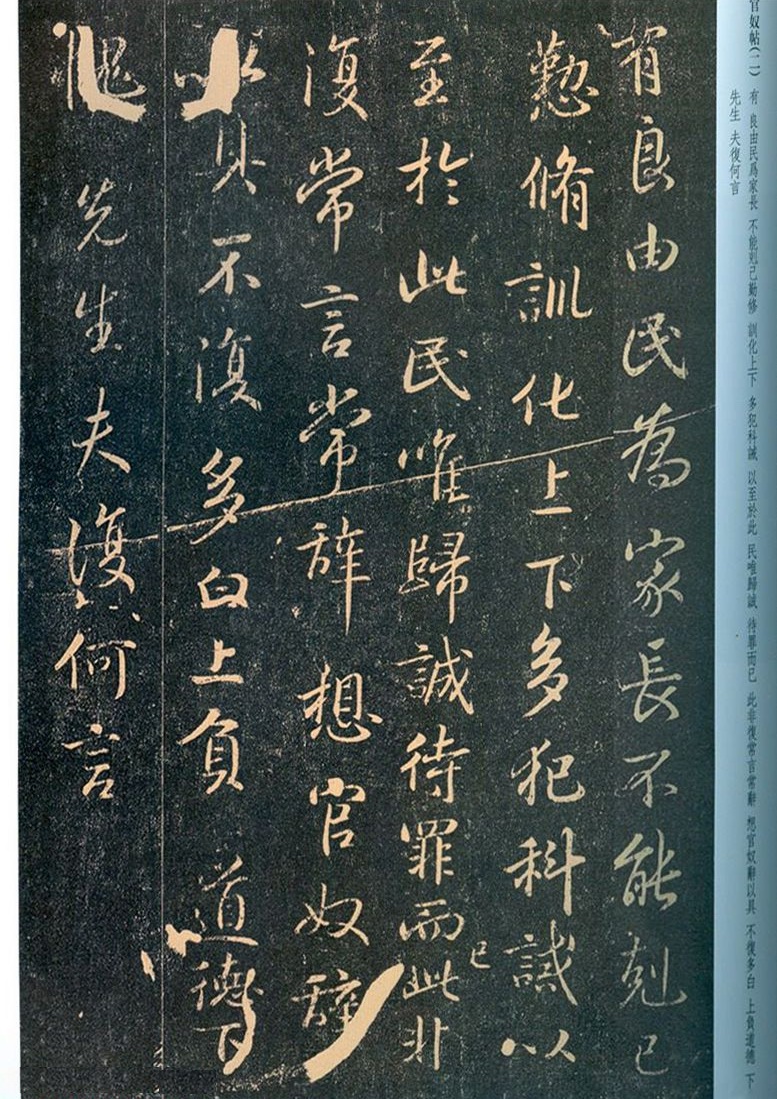 官奴帖(二) 有 良由民爲家長 不能剋己勤修 訓化上下 多犯科誡 以至於此 民唯歸誠 待罪而已 此非復常言常辭 想官奴辭以具 不復多白 上負道德 下
先生 夫復何言
有良由民為家長不能剋己
懃脩訓化上下多犯科誡以
至於此民唯歸誠待罪而已此非
復常言常辞想官奴辞
以具不復多白上負道德下
愧先生夫復何言